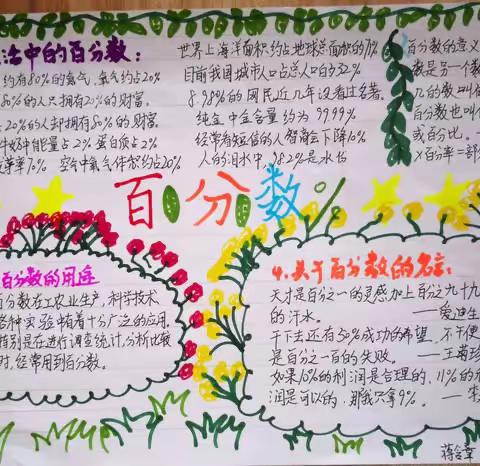 活中的百分数:
约有80%的氮气,氧气约占20%
80%的人只拥有20%的财富.
20%的人却拥有80%的财富.
牛奶中能量占2% 蛋白质占2%
芽率70% 空气中氧气体积约占20%
世界上海洋面积约占地球总面积的71%
目前我国城市人口占总人口的32%
8.98%的国民近几年没看过名著.
纯金中金含量约为99.99%
经常看短信的人智商会下降10%
人的泪水中,98.2%是水份
百分数的意义
数是另一个数
几的数叫做
百分数也叫
或百分比.
百分率=部分
百分数%
百分数的用途
百分数在工农业生产,科学技术
各种实验中有着十分广泛的应用.
特别是在进行调查统计,分析比较
时,经常用到百分数.
4.关于百分数的名言:
天才是百分之一的灵感加上百分之九十九
的汗水. ——爱迪生
干下去还有50%成功的希望,不干便
是百分之一百的失败. ——王菊珍
如果10%的利润是合理的,11%的利
润是可以的,那我只拿9%. ——李